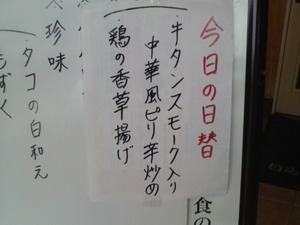 今日の日替
・牛タンスモーク入り
中華風ピリ辛炒め
・鶏の香草揚げ
珍味
タコの白和え
もずく
食の